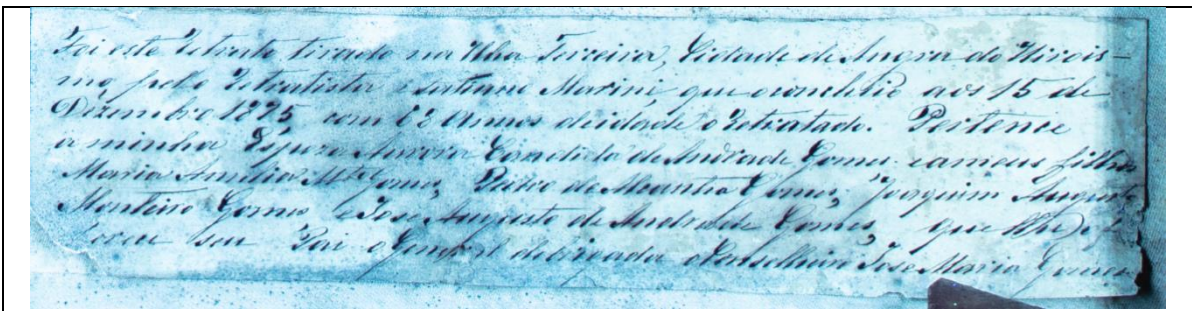 Foi este Retrato tirado na Ilha Terceira, Cidade de Angra do Herois-
mo, pelo Retratista Marini, que o concluio aos 15 de
Dizembro 1875 com 62 annos de idade o Retratado. Pertence
a minha Espoza Aurora Candida de Andrade Gomes e a meus filhos
Maria Amilia Mtel Gomes, Pedro de Gomes, Joaquim Augusto
Monteiro Gomes e Jose Augusto de Andrade Gomes, que lhe of
erece seu Pai o General de brigada Conselheiro Jose Maria Gomes